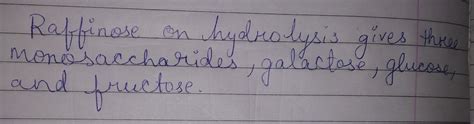 Raffinose on hydrolysis gives three
monosaccharides, galactose, glucose,
and fructose.